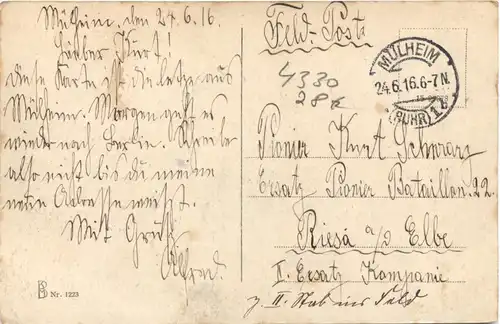 Mülheim, den 24.6.16.
Lieber Kurt!
diese Karte ist die letze aus
Mülheim. Morgen geht es
wieder nach Berlin. Schreibe
also nicht bis du meine
neue Adresse weißt.
Mit Gruß
Alfred.
BD Nr. 1223
Feld-Post
4330
MÜLHEIM
24.6.16.6-7N.
(RUHR) 1
Pionier Kurt Schwarz
Ersatz Pionier Bataillon 22
Riesa a/d Elbe
II. Ersatz Kompanie
z. II. Stab ins Feld